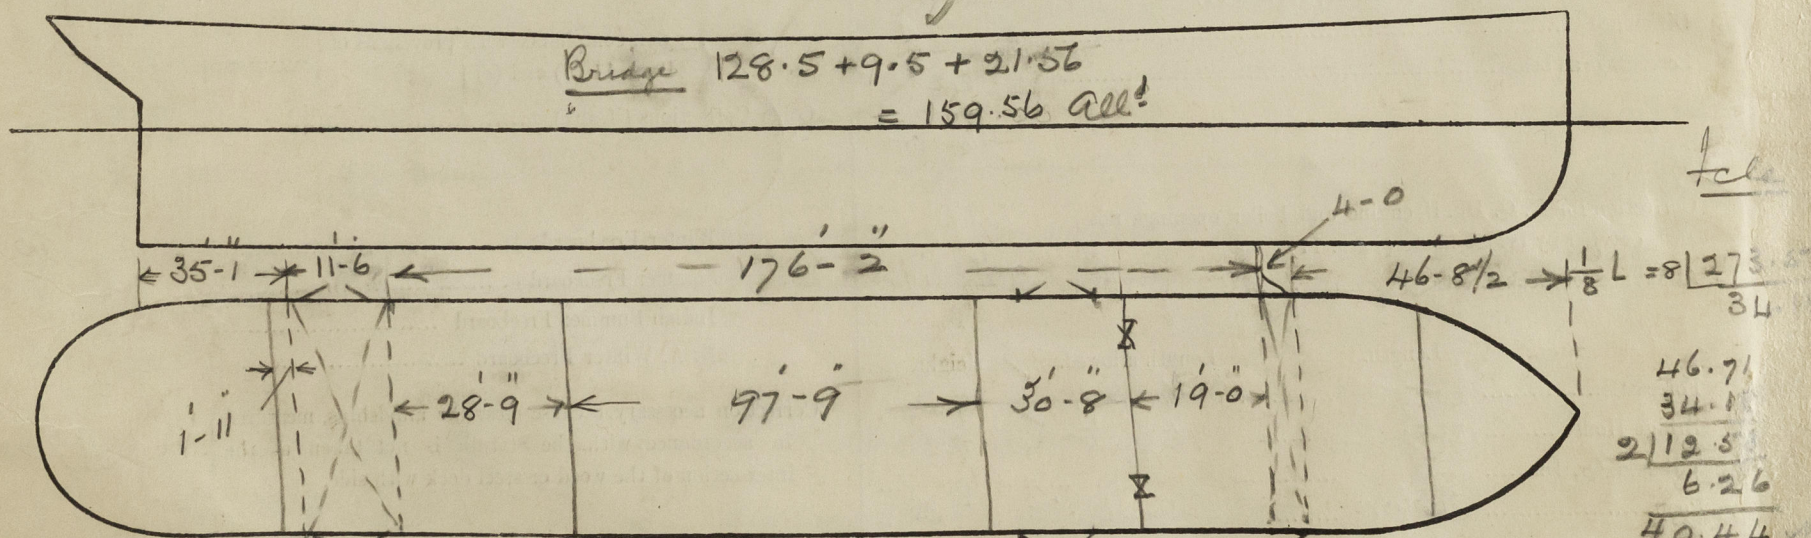 Bridge 128.5 + 9.5 + 21.56
= 159.56 all!
4-0
35'-1" 11'-6 176'-2" 46'-8 1/2 1/8 L = 8 | 273
34
28'-9" 97'-9" 30'-8" 19'-0"
1'-11"
46.71
34.1
2 | 12.5
6.26
40.44